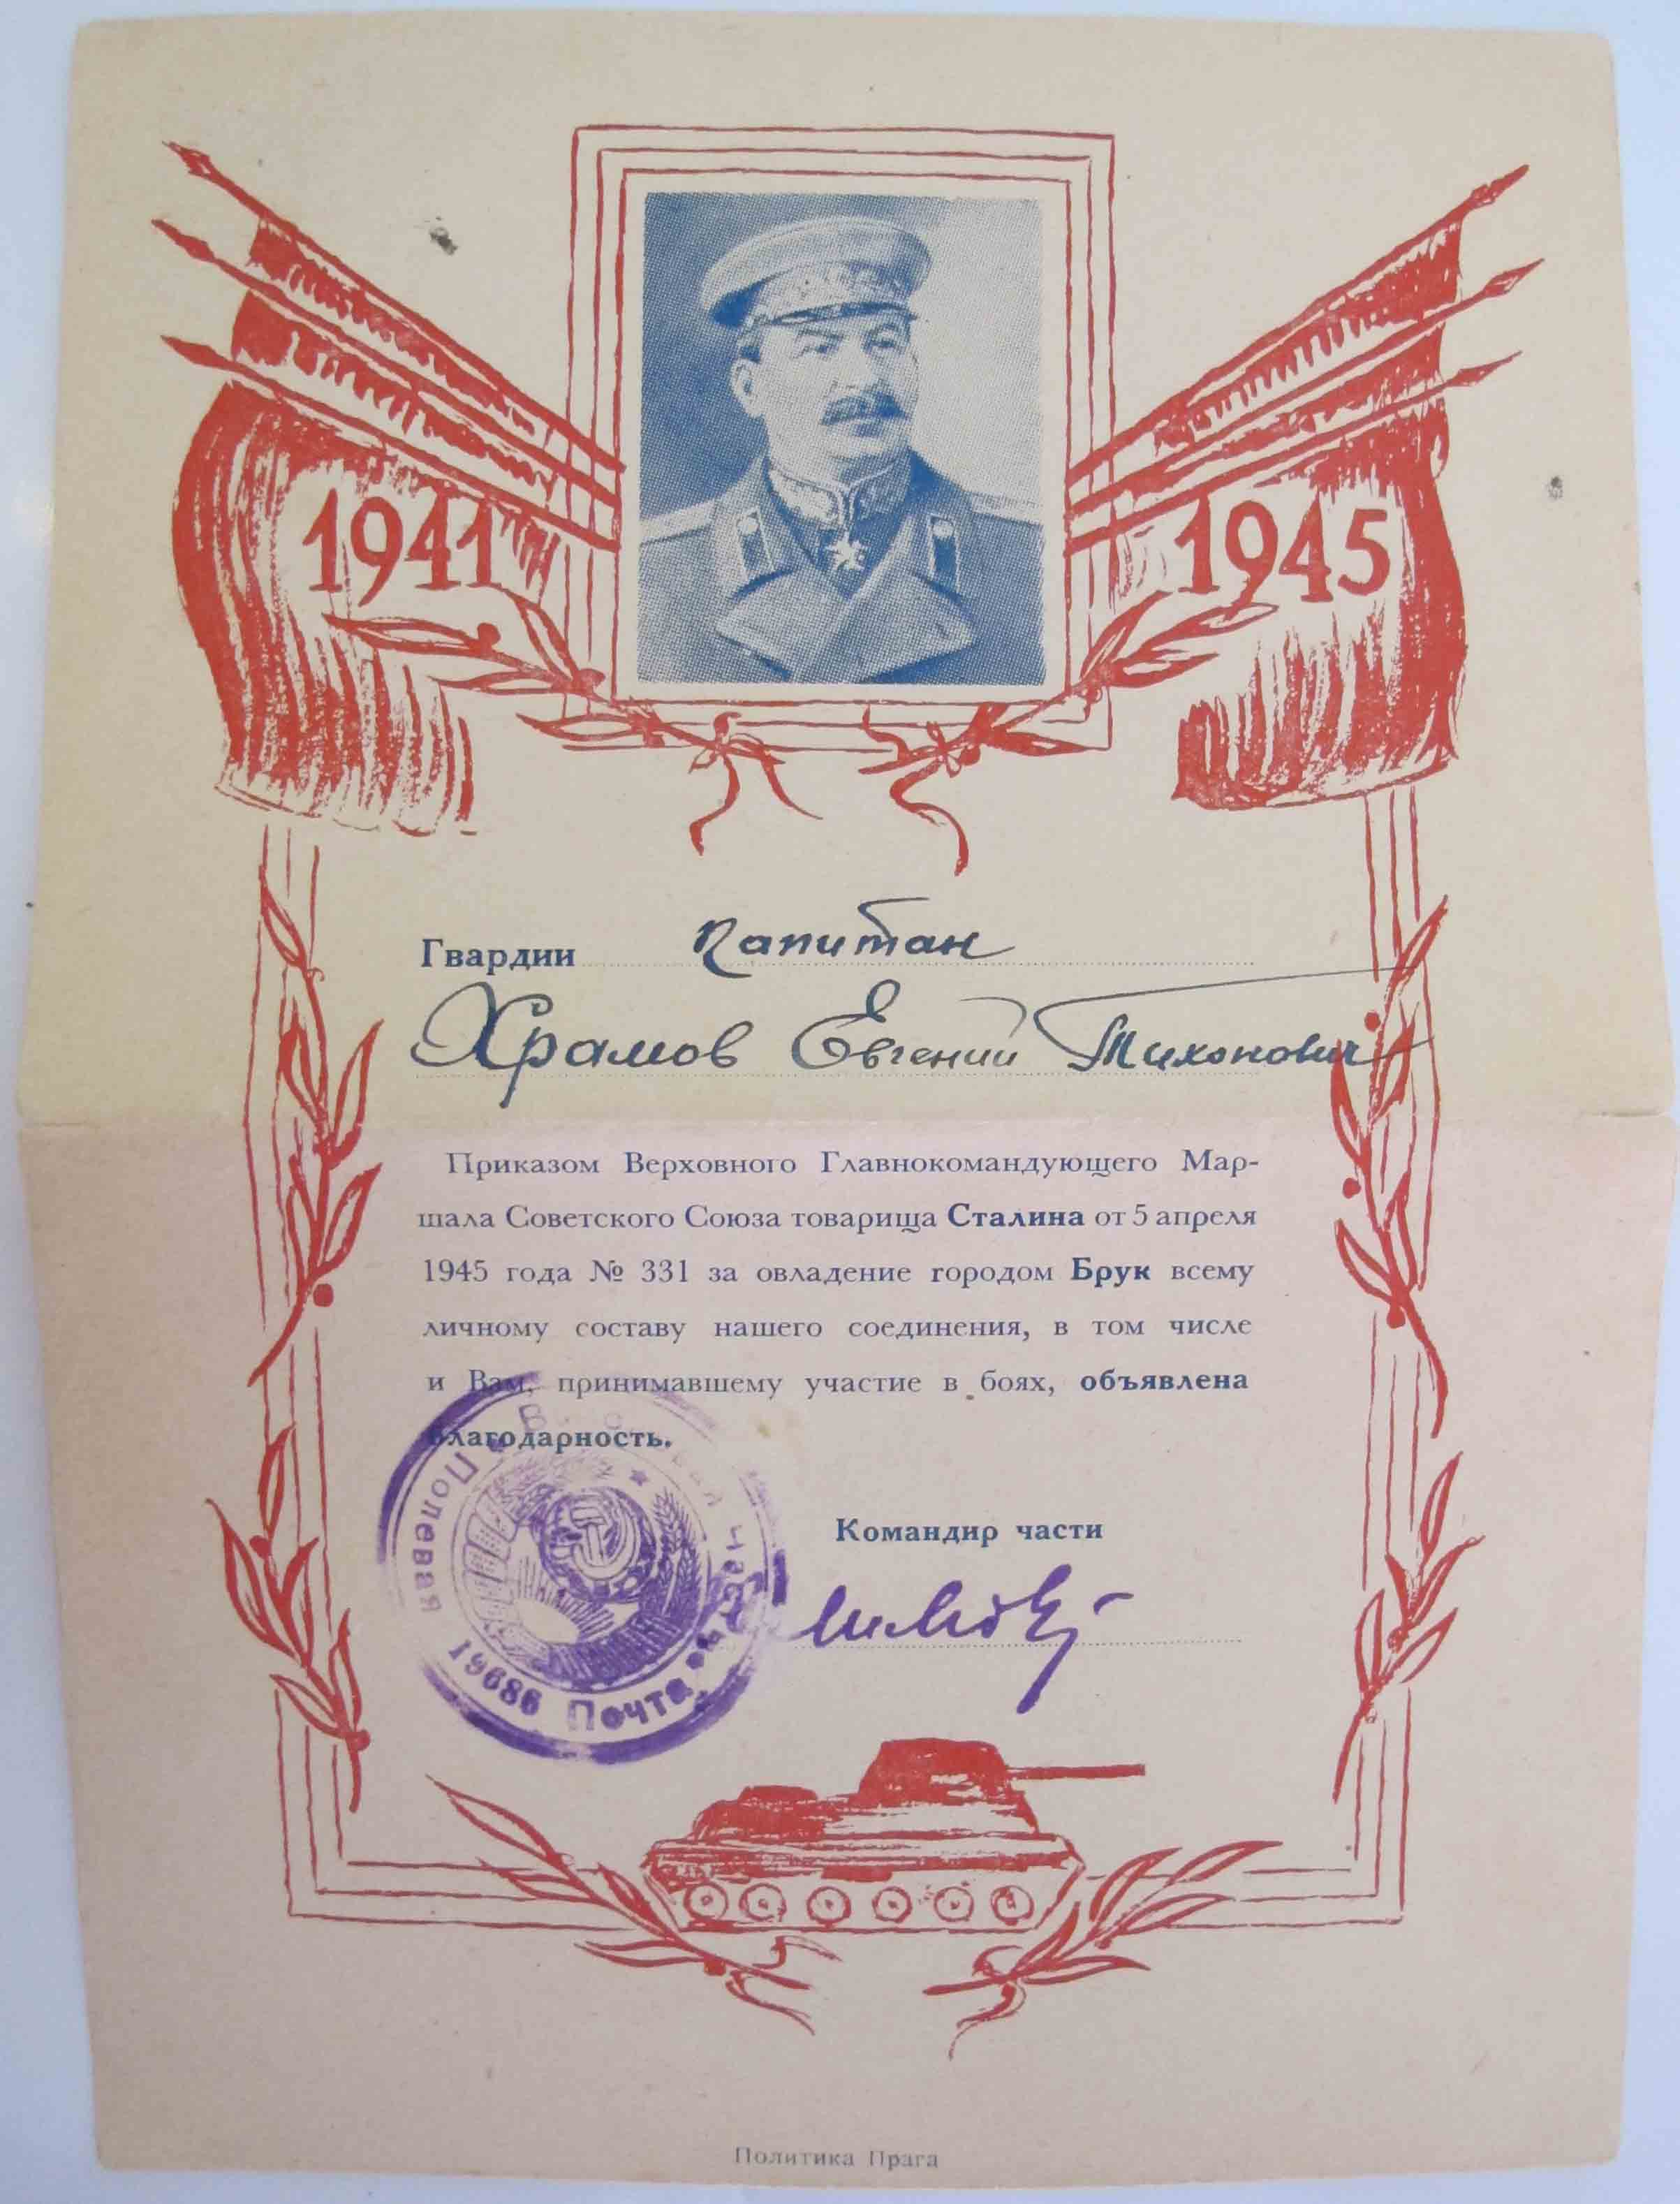 1941
1945
Гвардии капитан
Храмов Евгений Тихонович
Приказом Верховного Главнокомандующего Мар-
шала Советского Союза товарища Сталина от 5 апреля
1945 года № 331 за овладение городом Брук всему
личному составу нашего соединения, в том числе
и Вам, принимавшему участие в боях, объявлена
благодарность.
Командир части
Полевая
Почта
19686
Политика Прага